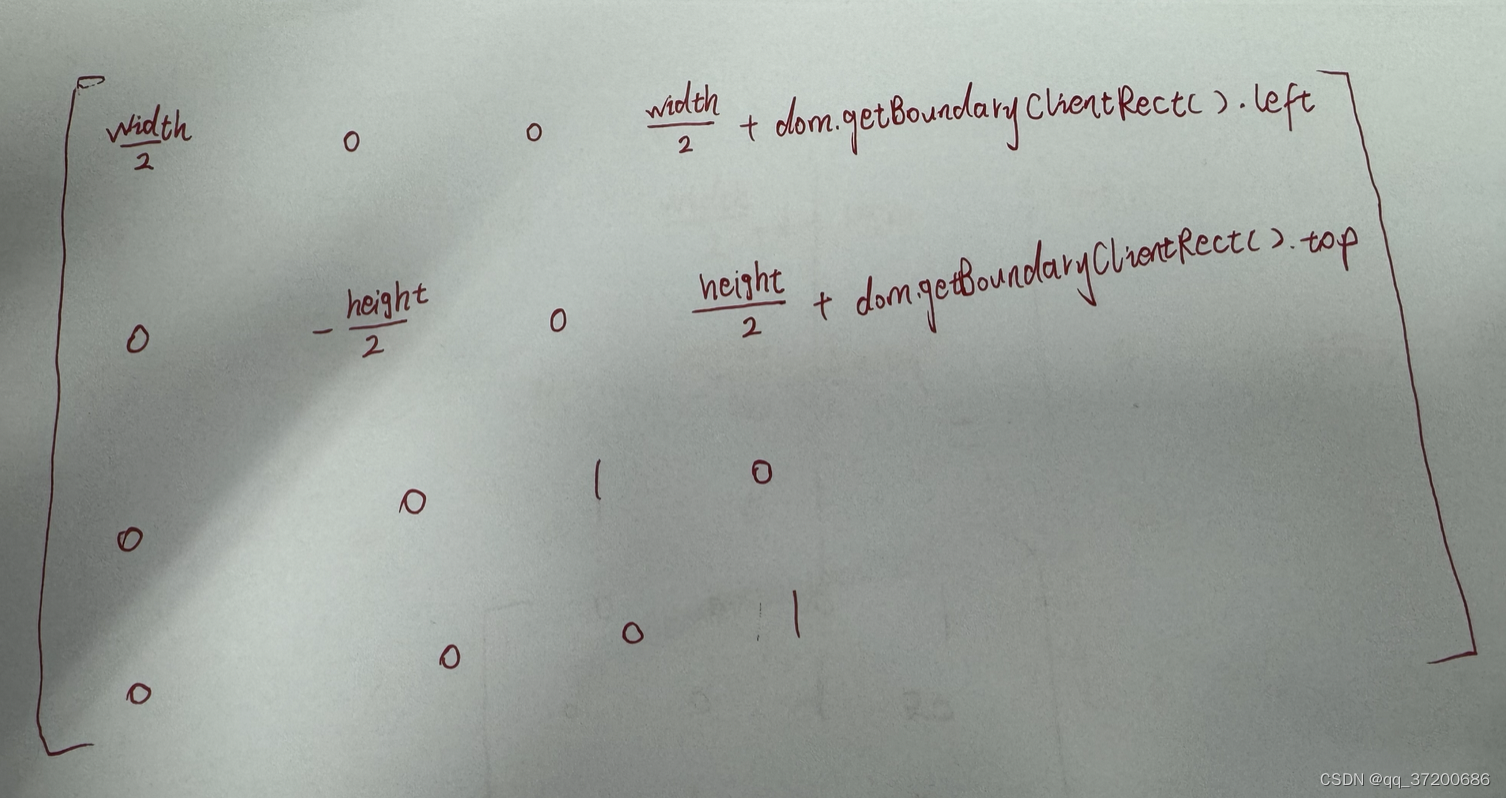 width/2 0 0 width/2 + dom.getBoundaryClientRect().left
0 -height/2 0 height/2 + dom.getBoundaryClientRect().top
0 0 1 0
0 0 0 1
CSDN @qq_37200686